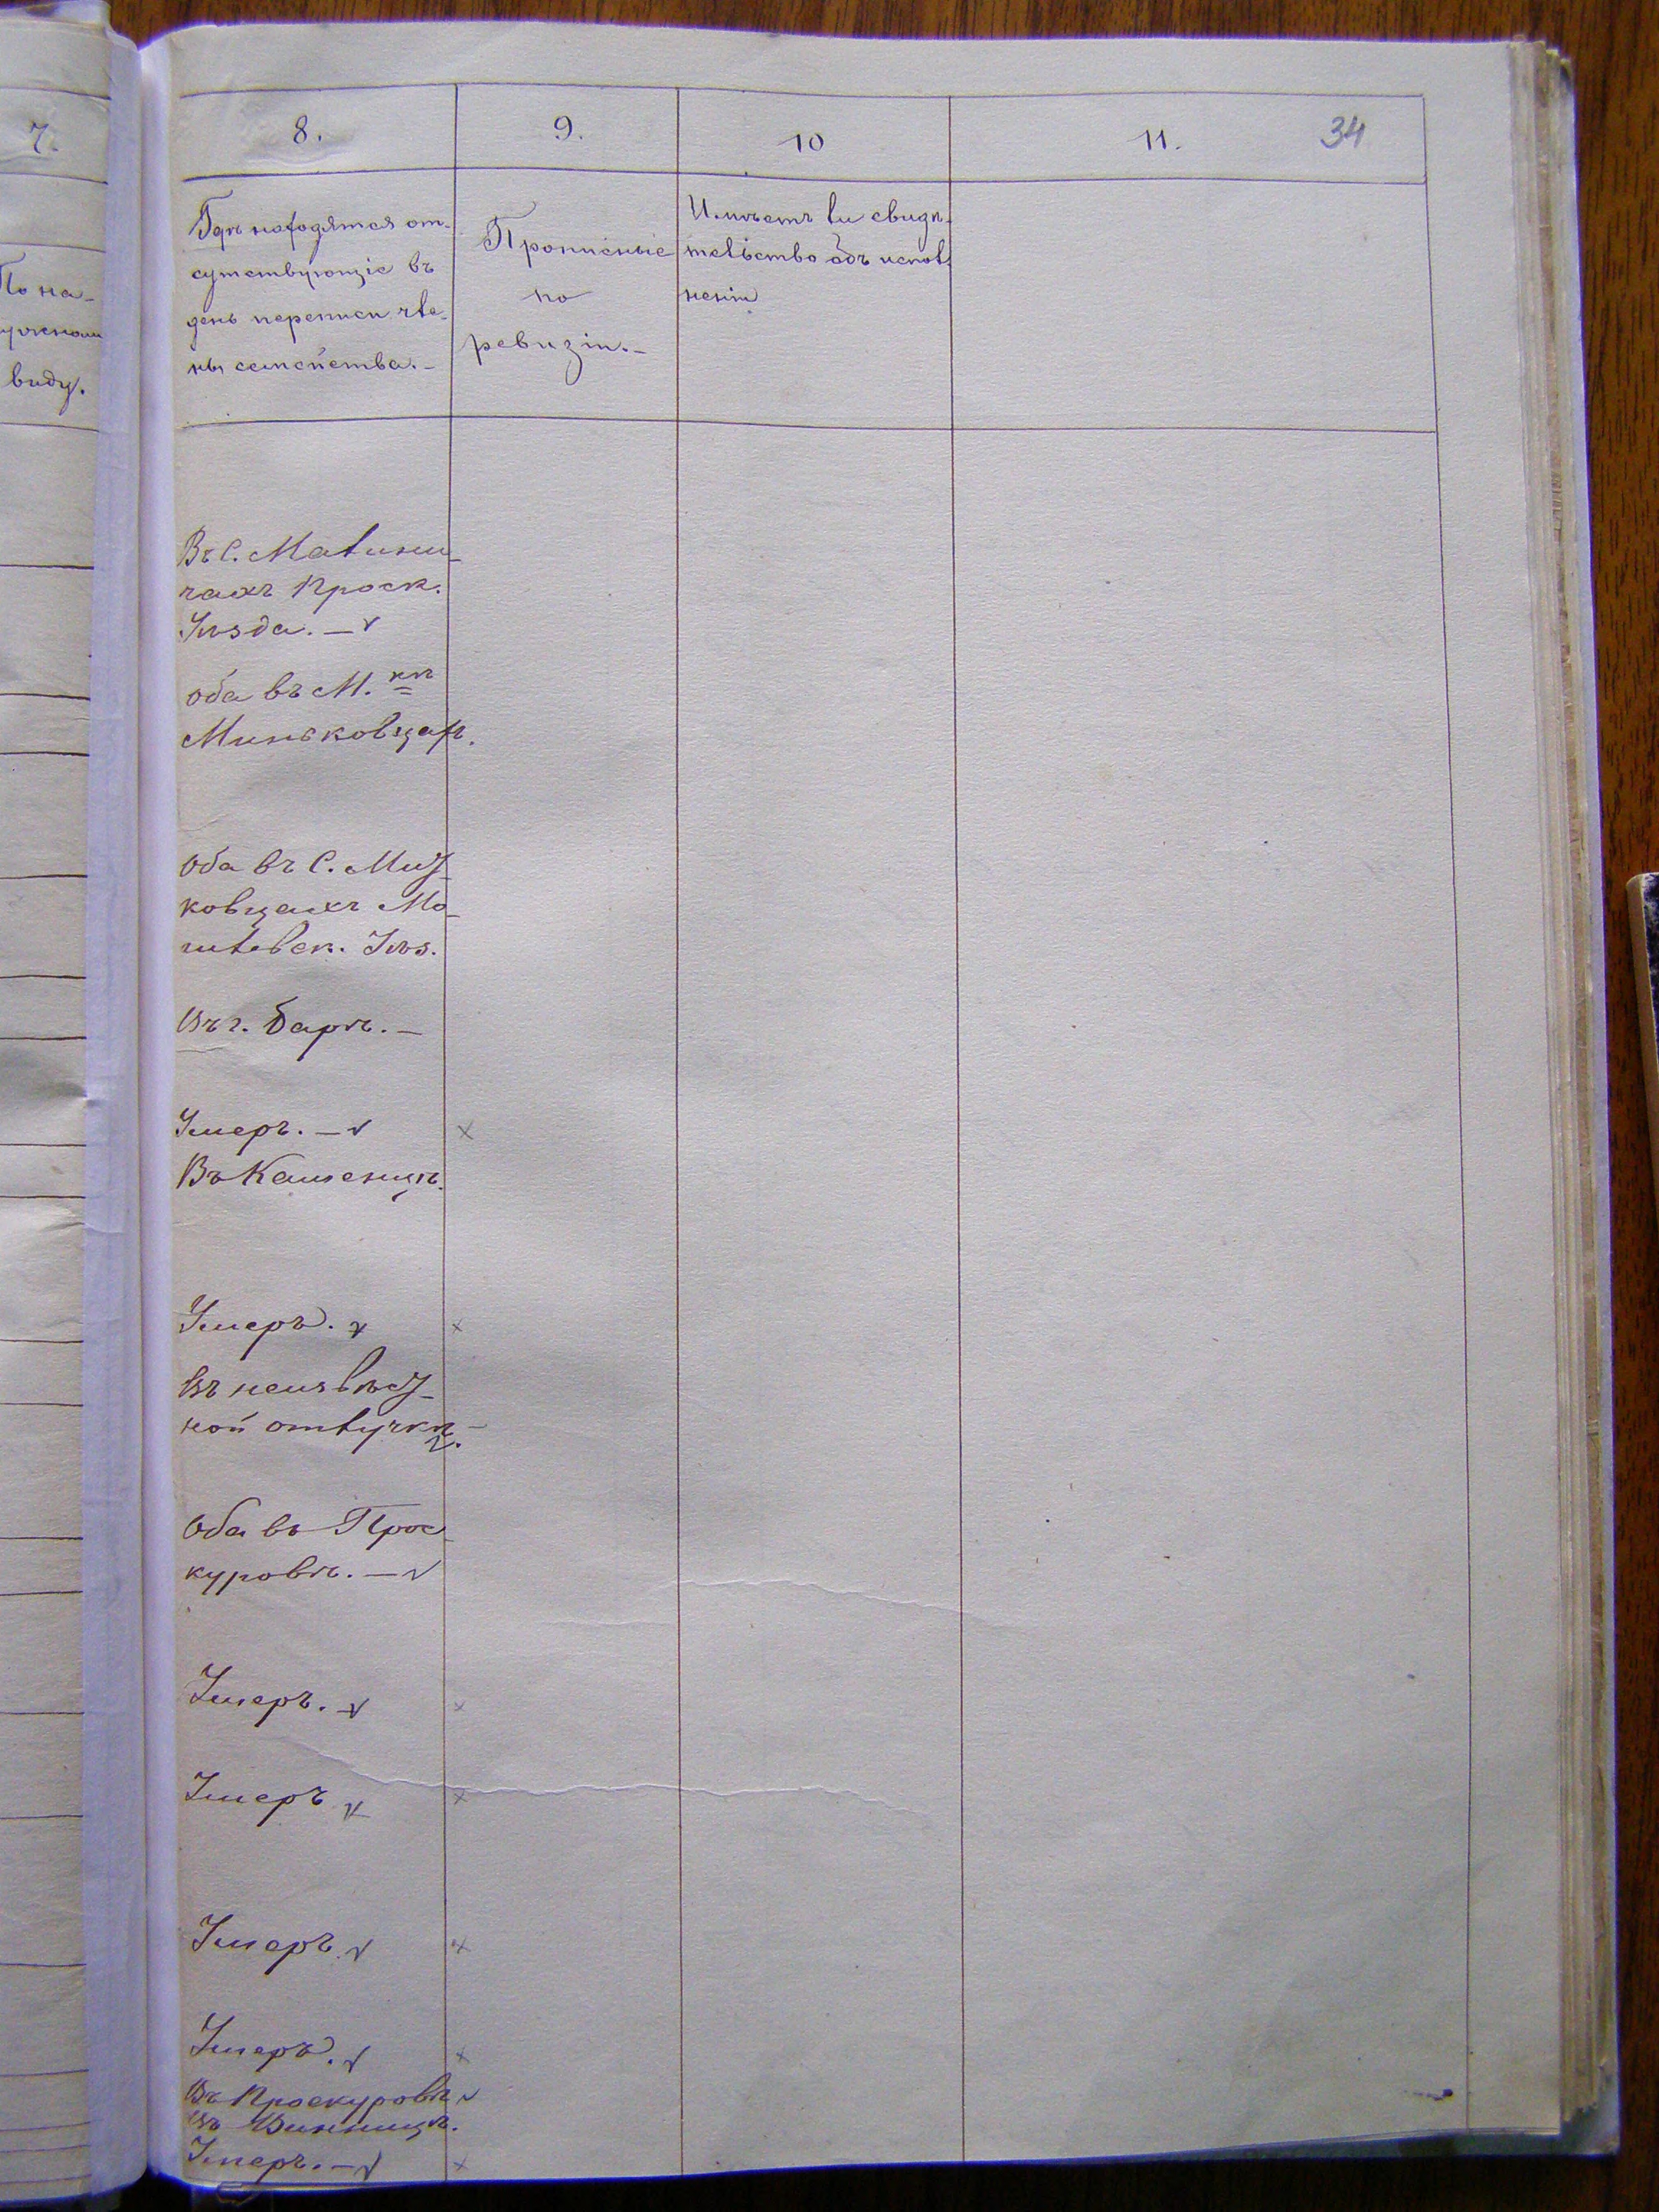 7.
По на-
ружному
виду.
8.
9.
10
11.
34
Гдѣ находятся от-
сутствующіе въ
день переписи чле-
ны семейства.-
Прописные
по
ревизіи.-
Имѣетъ ли свидѣ-
тельство объ испол-
неніи
Въ С. Малини-
чахъ Проск.
Уѣзда. -
Оба въ М.кѣ
Миньковцахъ.
Оба въ С.
ковцахъ Мо-
гилевск. Уѣз.
Въ г. Барѣ. -
Умеръ. -
Въ Каменцѣ.
Умеръ.
Въ неизвѣст-
ной отлучкѣ.
Оба въ Прос-
куровѣ. -
Умеръ.
Умеръ
Умеръ.
Умеръ.
Въ Проскуровѣ
Въ Винницѣ.
Умеръ. -